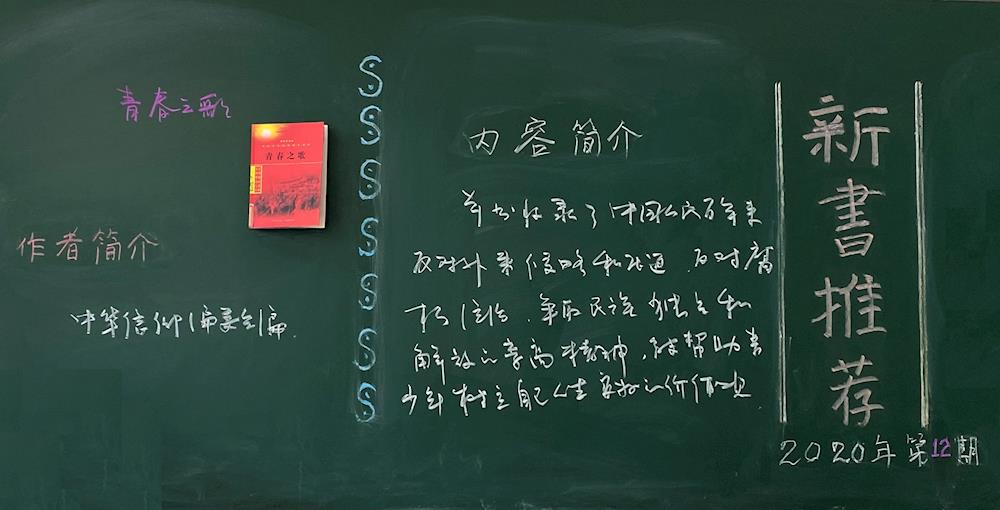 青春之歌
青春之歌
作者简介
中华信仰编委会编
内容简介
本书收录了中国人民百年来
反对外来侵略和压迫 反对腐
朽统治 争取民族独立和
解放的崇高精神, 能帮助青
少年树立自己人生 的价值观
新書推荐
2020年第12期